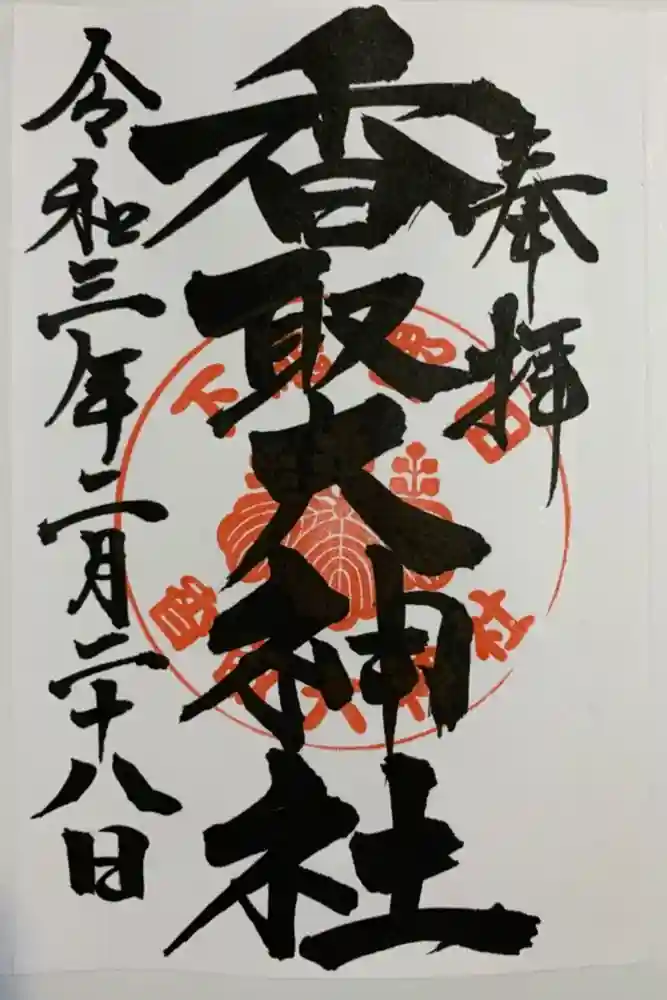 奉拝
香取大神社
令和三年二月二十八日
下総國
香取大神社